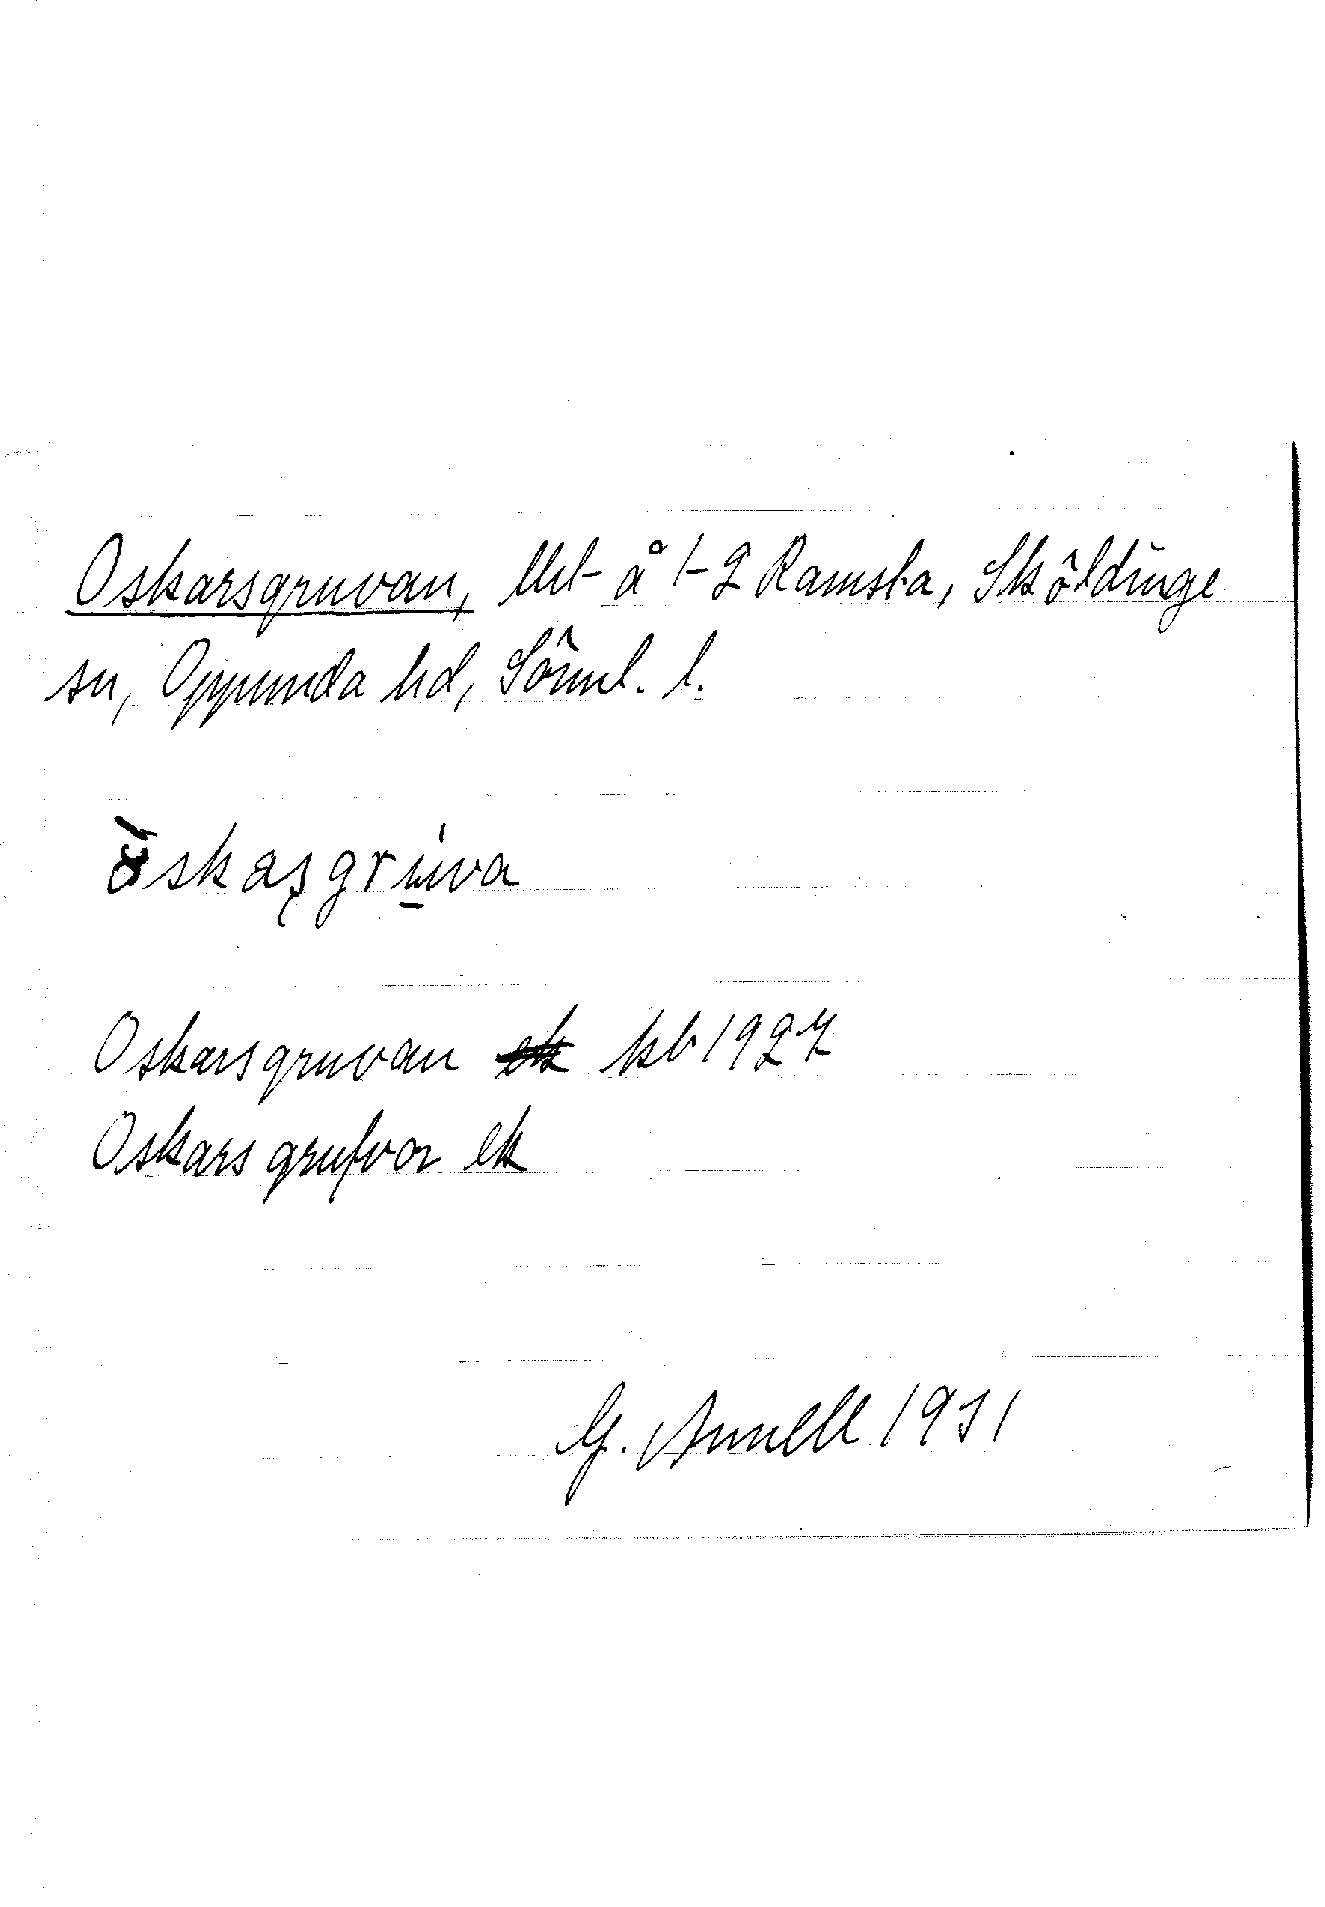 Oskarsgruvan, lht å 1-2 Ramsta, Sköldinge
sn, Oppunda hd, Sörml. l.
Oskarsgruvan kb 1927
Oskars grufvor ek
G. Annell 1931